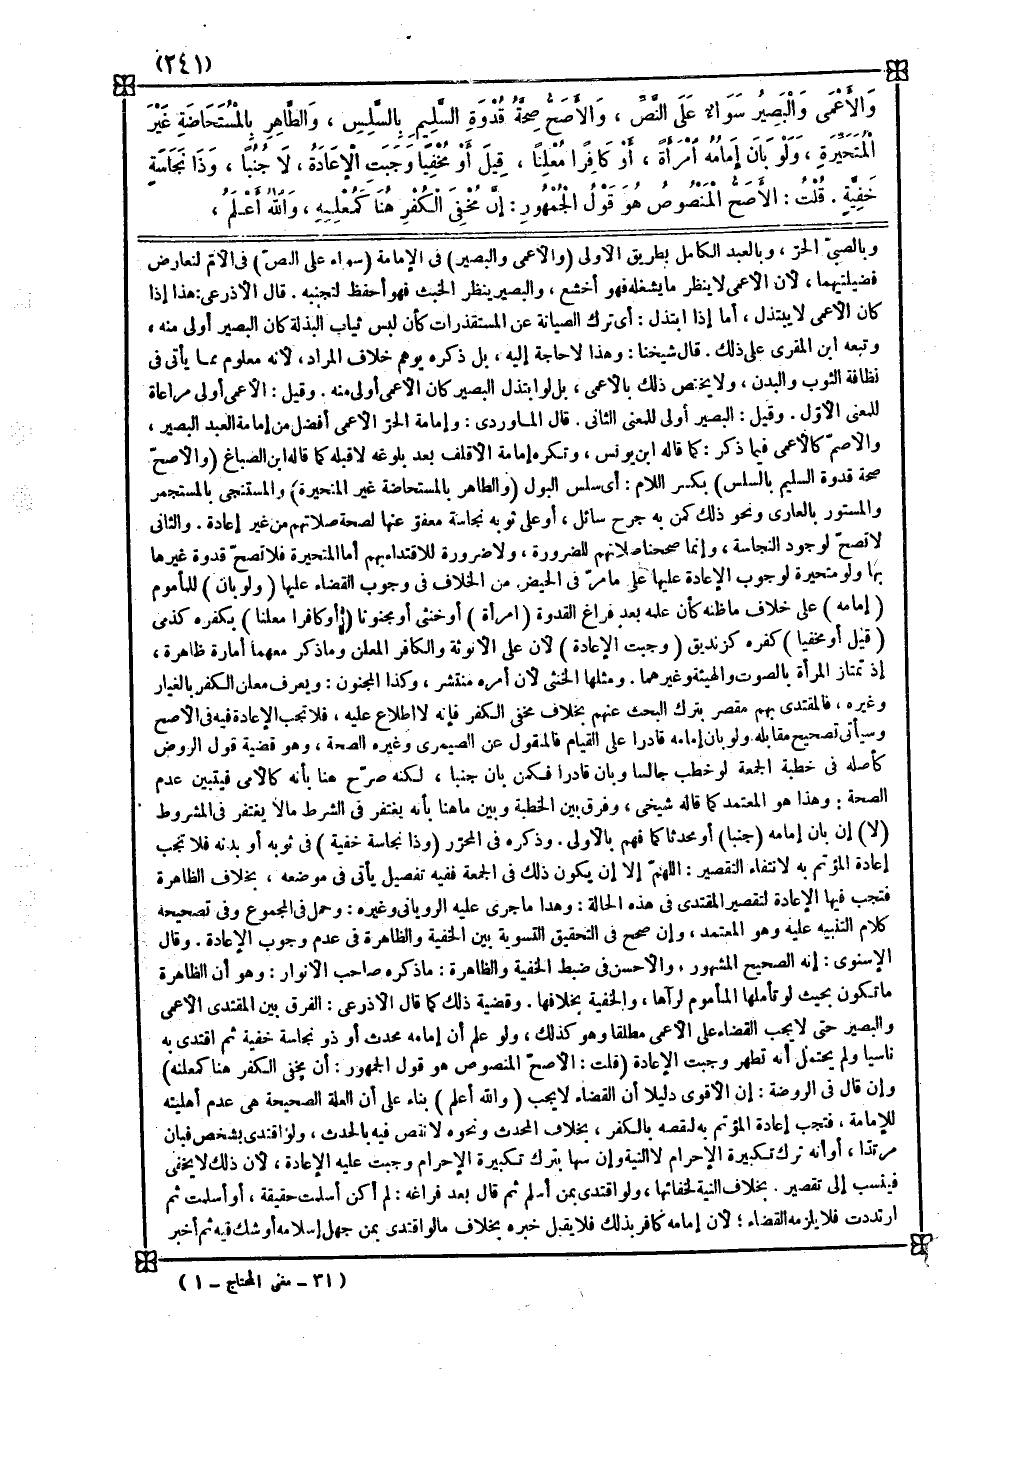 (٢٤١)
وَالْأَعْمَى وَالْبَصِيرُ سَوَاءٌ عَلَى النَّصِّ ، وَالْأَصَحُّ صِحَّةُ قُدْوَةِ السَّلِيمِ بِالسَّلِسِ ، وَالطَّاهِرِ بِالْمُسْتَحَاضَةِ غَيْرِ
الْمُتَحَيِّرَةِ ، وَلَوْ بَانَ إِمَامُهُ آمْرَأَةً ، أَوْ كَافِرًا مُعْلِنًا ، قِيلَ أَوْ مُخْفِيًا وَجَبَتِ الْإِعَادَةُ ، لَا جُنُبًا ، وَذَا نَجَاسَةٍ
خَفِيَّةٍ . قُلْتُ : الْأَصَحُّ الْمَنْصُوصُ هُوَ قَوْلُ الْجُمْهُورِ : إِنَّ مُخْفِيَ الْكُفْرِ هُنَا كَمُعْلِنِهِ ، وَاللهُ أَعْلَمُ ،
وبالصبىّ الحرّ ، وبالعبد الكامل بطريق الأولى (والأعمى والبصير) فى الإمامة (سواء على النصّ) فى الأمّ لتعارض
فضيلتيهما ، لأن الأعمى لا ينظر ما يشغله فهو أخشع ، والبصير ينظر الخبث فهو أحفظ لتجنبه . قال الأذرعى : هذا إذا
كان الأعمى لا يبتذل ، أما إذا ابتذل : أى ترك الصيانة عن المستقذرات كأن لبس ثياب البذلة كان البصير أولى منه ،
وتبعه ابن المقرى على ذلك . قال شيخنا : وهذا لا حاجة إليه ، بل ذكره يوهم خلاف المراد ، لأنه معلوم مما يأتى فى
نظافة الثوب والبدن ، ولا يختص ذلك بالأعمى ، بل لو ابتذل البصير كان الأعمى أولى منه . وقيل : الأعمى أولى مراعاة
للمعنى الأوّل . وقيل : البصير أولى للمعنى الثانى . قال الماوردى : وإمامة الحرّ الأعمى أفضل من إمامة العبد البصير ،
والأصمّ كالأعمى فيما ذكر : كما قاله ابن يونس ، وتكره إمامة الأقلف بعد بلوغه لا قبله كما قاله ابن الصباغ (والأصحّ
صحة قدوة السليم بالسلس) بكسر اللام : أى سلس البول (والطاهر بالمستحاضة غير المتحيرة) والمستنجى بالمستجمر
والمستور بالعارى ونحو ذلك كمن به جرح سائل ، أو على ثوبه نجاسة معفوّ عنها لصحة صلاتهم من غير إعادة . والثانى
لا تصحّ لوجود النجاسة ، وإنما صححنا صلاتهم للضرورة ، ولا ضرورة للاقتداء بهم أما المتحيرة فلا تصحّ قدوة غيرها
بها ولو متحيرة لوجوب الإعادة عليها على ما مرّ فى الحيض من الخلاف فى وجوب القضاء عليها (ولو بان) للمأموم
(إمامه) على خلاف ما ظنه كأن علمه بعد فراغ القدوة (امرأة) أو خنثى أو مجنونا (أو كافرا معلنا) بكفره كذمى
(قيل أو مخفيا) كفره كزنديق (وجبت الإعادة) لأن على الأنوثة والكافر المعلن وما ذكر معهما أمارة ظاهرة ،
إذ تمتاز المرأة بالصوت والهيئة وغيرهما . ومثلها الخنثى لأن أمره منتشر ، وكذا المجنون : ويعرف معلن الكفر بالغيار
وغيره ، فالمقتدى بهم مقصر بترك البحث عنهم بخلاف مخفى الكفر فإنه لا اطلاع عليه ، فلا تجب الإعادة فيه فى الأصح
وسيأتى تصحيح مقابله ولو بان إمامه قادرا على القيام فالمنقول عن الصيمرى وغيره الصحة ، وهو قضية قول الروض
كأصله فى خطبة الجمعة لو خطب جالسا وبان قادرا فكمن بان جنبا ، لكنه صرّح هنا بأنه كالأمى فيتبين عدم
الصحة : وهذا هو المعتمد كما قاله شيخى ، وفرق بين الخطبة وبين ما هنا بأنه يغتفر فى الشرط مالا يغتفر فى المشروط
(لا) إن بان إمامه (جنبا) أو محدثا كما فهم بالأولى . وذكره فى المحرّر (وذا نجاسة خفية) فى ثوبه أو بدنه فلا تجب
إعادة المؤتم به لانتفاء التقصير : اللهمّ إلا إن يكون ذلك فى الجمعة ففيه تفصيل يأتى فى موضعه ، بخلاف الظاهرة
فتجب فيها الإعادة لتقصير المقتدى فى هذه الحالة : وهذا ما جرى عليه الرويانى وغيره : وحمل فى المجموع وفى تصحيحه
كلام التنبيه عليه وهو المعتمد ، وإن صحح فى التحقيق التسوية بين الخفية والظاهرة فى عدم وجوب الإعادة . وقال
الإسنوى : إنه الصحيح المشهور ، والأحسن فى ضبط الخفية والظاهرة : ما ذكره صاحب الأنوار : وهو أن الظاهرة
ما تكون بحيث لو تأملها المأموم لرآها ، والخفية بخلافها . وقضية ذلك كما قال الأذرعى : الفرق بين المقتدى الأعمى
والبصير حتى لا يجب القضاء على الأعمى مطلقا وهو كذلك ، ولو علم أن إمامه محدث أو ذو نجاسة خفية ثم اقتدى به
ناسيا ولم يحتمل أنه تطهر وجبت الإعادة (قلت : الأصحّ المنصوص هو قول الجمهور : أن مخفى الكفر هنا كمعلنه)
وإن قال فى الروضة : إن الأقوى دليلا أن القضاء لا يجب (والله أعلم) بناء على أن العلة الصحيحة هى عدم أهليته
للإمامة ، فتجب إعادة المؤتم به لنقصه بالكفر ، بخلاف المحدث ونحوه لا نقص فيه بالحدث ، ولو اقتدى بشخص فبان
مرتدا ، أو أنه ترك تكبيرة الإحرام لا النية وإن سها بترك تكبيرة الإحرام وجبت عليه الإعادة ، لأن ذلك لا يخفى
فينسب إلى تقصير . بخلاف النية لخفائها ، ولو اقتدى بمن أسلم ثم قال بعد فراغه : لم أكن أسلمت حقيقة ، أو أسلمت ثم
ارتددت فلا يلزمه القضاء ؛ لأن إمامه كافر بذلك فلا يقبل خبره بخلاف مالو اقتدى بمن جهل إسلامه أو شك فيه ثم أخبر
(٣١ - مغنى المحتاج - ١)